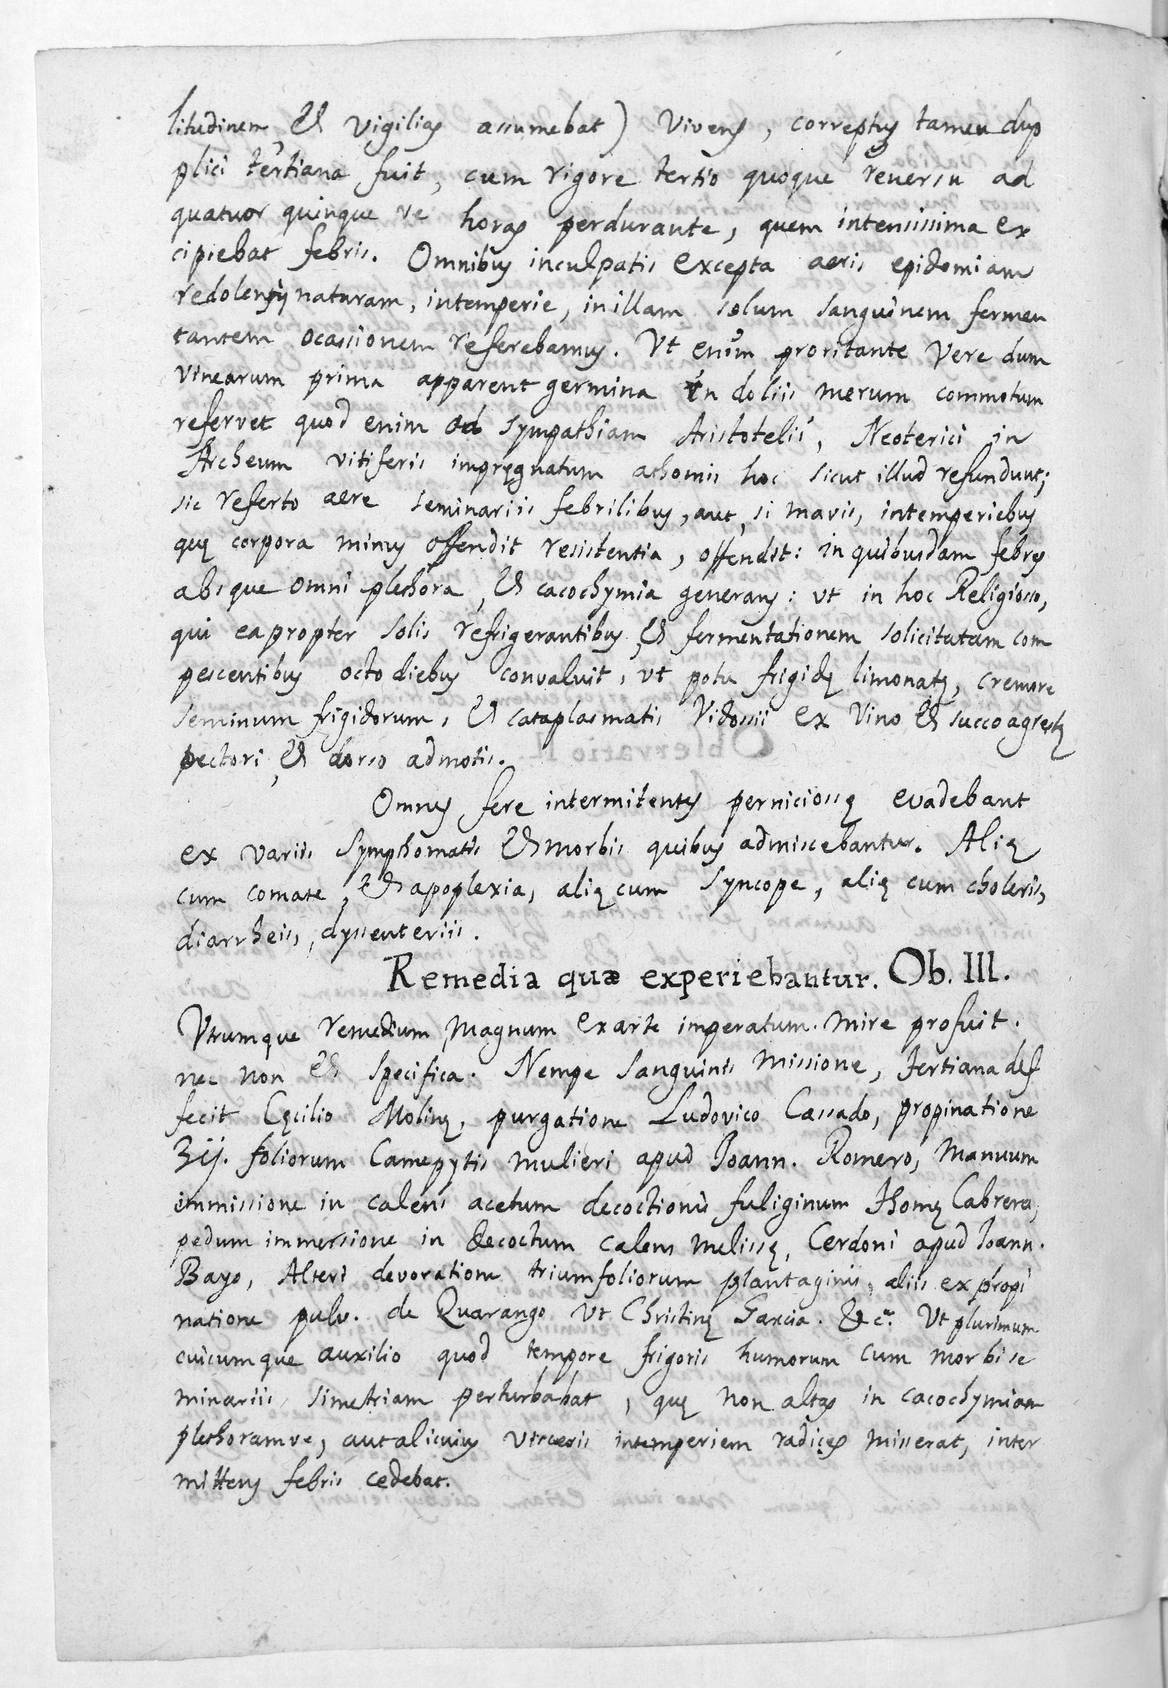 litudinem & vigilias assumebat) vivens, correptus tamen dup
plici tertiana fuit, cum rigore tertio quoque reversu ad
quatuor quinque ve horas perdurante, quem intensissima ex
cipiebat febris. Omnibus inculpatis excepta aeris epidemiam
redolentis naturam, intemperie, in illam solum sanguinem fermen
tantem ocassionem referebamus. Vt enim proritante Vere dum
vinearum prima apparent germina in doliis merum commotum
refervet quod enim ad sympathiam Aristotelis, Neoterici in
Archeum vitiferis impręgnatum athomis hoc sicut illud refundunt;
sic referto aere seminariis febrilibus, aut, si mavis, intemperiebus
quę corpora minus offendit resistentia, offendit: in quibusdam febres
absque omni plethora, & cacochymia generans: vt in hoc Religiosso,
qui eapropter solis refrigerantibus, & fermentationem solicitatam com
pescentibus octo diebus convaluit, vt potu frigidę limonatę, cremore
seminum frigidorum, & cataplasmatis Vidossii ex Vino & succo agrestę
pectori, & dorso admotis.
Omnes fere intermitentes perniciossę evadebant
ex variis symphomatis & morbis quibus admiscebantur. Alię
cum comate, & apoplexia, alię cum syncope, alię cum choleris,
diarrheis, dyssenteriis.
Remedia quæ experiebantur. Ob. III.
Vtrumque remedium magnum ex arte imperatum. mire profuit.
nec non & specifica. Nempe sanguinis missione, tertiana def
fecit Cęcilio Molinę, purgatione Ludovico Cassado, propinatione
ʒij. foliorum Camepytis mulieri apud Ioann. Romero, Manuum
immissione in calens acetum decoctionis fuliginum Thomę Cabrera,
pedum immersione in decoctum calens melissę, Cerdoni apud Ioann.
Bayo, Alteri devoratione trium foliorum plantaginis, aliis ex propi
natione pulv. de Quarango vt Christinę Garcia. &c.ª Vt plurimum
cuicumque auxilio quod tempore frigoris humorum cum morbi se
minariis simetriam perturbabat, quę non altas in cacochymiam
plethoramve, aut alicuius visceris intemperiem radices misserat, inter
mittens febris cedebat.